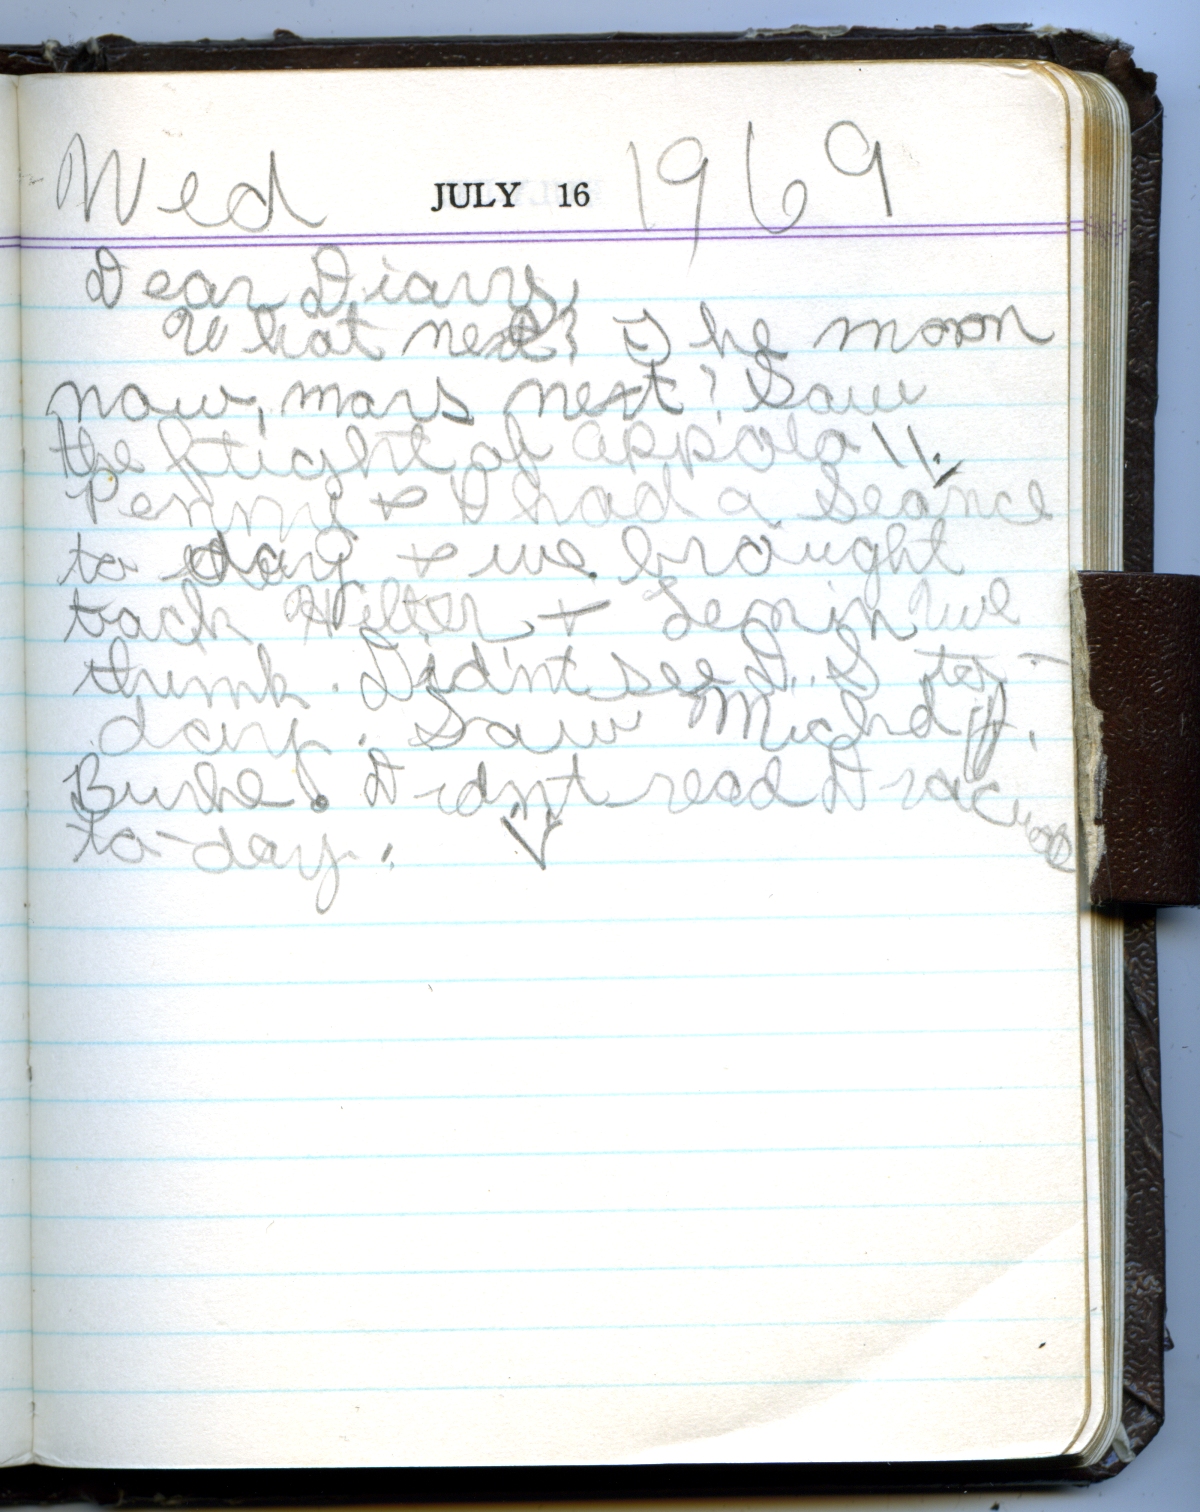 Wed JULY 16 1969
Dear Diary,
What next? The moon
now, mars next? Saw
the flight of appolo 11.
Penny & I had a seance
to day & we brought
back Hilter & Lenin we
think. Didn't see D.S to-
day. Saw
Burke. Didn't read Dracula
to-day.